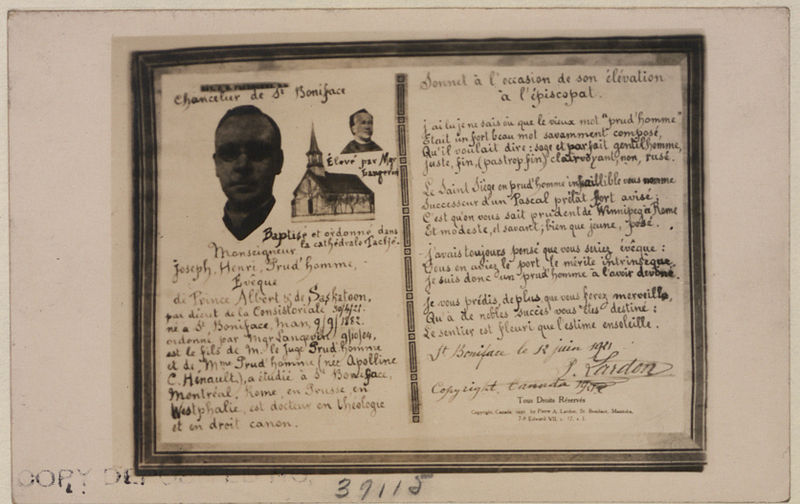 Chancelier de St Boniface
Élevé par Mgr
Langevin
Baptisé et ordonné dans
la cathédrale Taché.
Monseigneur
Joseph, Henri, Prud'homme,
Évêque
de Prince Albert & de Saskatoon,
par décret de la Consistoriale 30/4/21.
né à St Boniface, Man, 9/9/1882.
ordonné par Mgr Langevin 9/10/04,
est le fils de M. le Juge Prud'homme
et de Mme Prud'homme (née Apolline
C. Hénault), a étudié à St Boniface,
Montréal, Rome, en Prusse, en
Westphalie, est docteur en théologie
et en droit canon.
Sonnet à l'occasion de son élévation
à l'épiscopat.
j'ai lu je ne sais où que le vieux mot "prud'homme"
Était un fort beau mot savamment composé,
Qu'il voulait dire: sage et parfait gentilhomme,
Juste, fin, (pas trop fin) clairvoyant, non, rusé.
Le Saint Siège en prud'homme infaillible vous nomme
Successeur d'un Pascal prélat fort avisé;
C'est qu'on vous sait prudent de Winnipeg à Rome
Et modeste, et savant; bien que jeune, posé.
j'avais toujours pensé que vous seriez évêque:
Vous en aviez le port, le mérite intrinsèque.
Je suis donc un prud'homme à l'avoir deviné.
Je vous prédis, de plus, que vous ferez merveille,
Qu'à de nobles succès vous êtes destiné:
Le sentier est fleuri que l'estime ensoleille.
St Boniface le 12 juin 1921
P. Lardon
Copyright, Canada
Tous Droits Réservés
Copyright, Canada, 1921, by Pierre A. Lardon, St. Boniface, Manitoba,
7-8 Edward VII, c. 17, s. 1.
COPY DEPOSITED NO.
39115